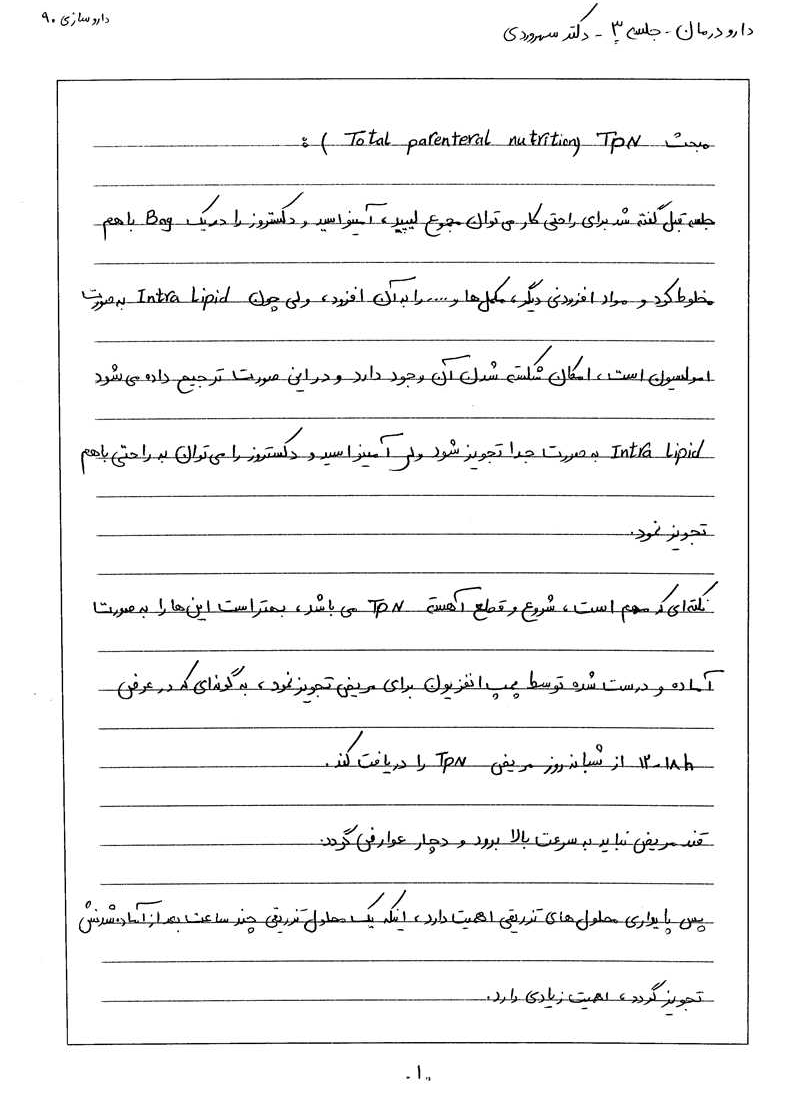 داروسازی ۹۰
دارو درمان - جلسه ۳ - دکتر سهروردی
مبحث TPN (Total parenteral nutrition) :
جلسه قبل گفته شد برای راحتی کار می‌توان مجموع لیپید، آمینواسید و دکستروز را در یک Bag با هم
مخلوط کرد و مواد افزودنی دیگر، مکمل‌ها و .... را به آن افزود، ولی چون Intra Lipid به صورت
امولسیون است، امکان شکسته شدن آن وجود دارد و در این صورت ترجیح داده می‌شود
Intra Lipid به صورت جدا تجویز شود ولی آمینواسید و دکستروز را می‌توان به راحتی با هم
تجویز نمود.
نکته‌ای که مهم است، شروع و قطع آهسته TPN می باشد، بهتر است این‌ها را به صورت
آماده و درست شده توسط پمپ انفوزیون برای مریض تجویز نمود، به گونه‌ای که در عرض
۱۲-۱۸h از شبانه روز مریض TPN را دریافت کند.
قند مریض نباید به سرعت بالا برود و دچار عوارض گردد.
پس پایداری محلول های تزریقی اهمیت دارد، اینکه یک محلول تزریقی چند ساعت بعد از آماده شدنش
تجویز گردد، اهمیت زیادی دارد.
۱